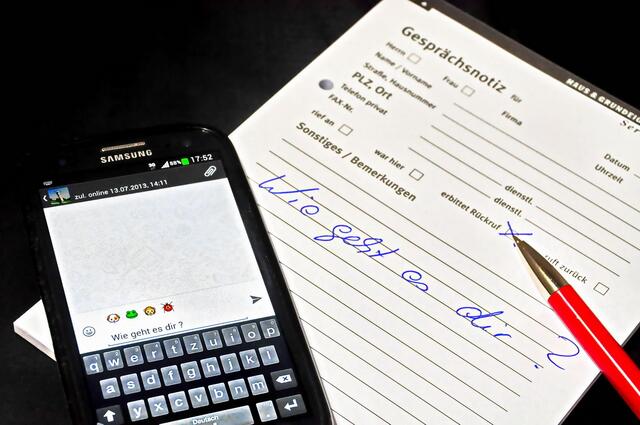 SAMSUNG
3G 88% 17:52
zul. online 13.07.2013, 14:11
Wie geht es dir ?
q w e r t z u i o p
a s d f g h j k l
y x c v b n m
Deutsch
HAUS & GRUND
Gesprächsnotiz
Herrn Frau für
Name / Vorname Firma
Straße, Hausnummer
PLZ, Ort Datum
Telefon privat Uhrzeit
FAX-Nr. dienstl.
dienstl.
rief an war hier erbittet Rückruf ruft zurück
Sonstiges / Bemerkungen
Wie geht es dir ?